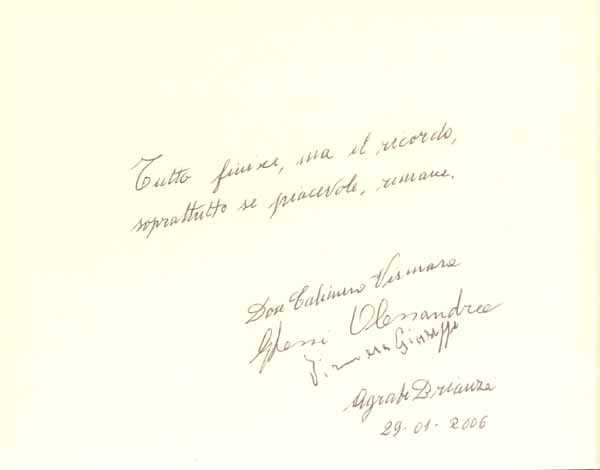 Tutto finisce, ma il ricordo,
soprattutto se piacevole, rimane.
Don Calimero Vismara
Alessandra
Vismara Giuseppe
Agrate Brianza
29-01-2006